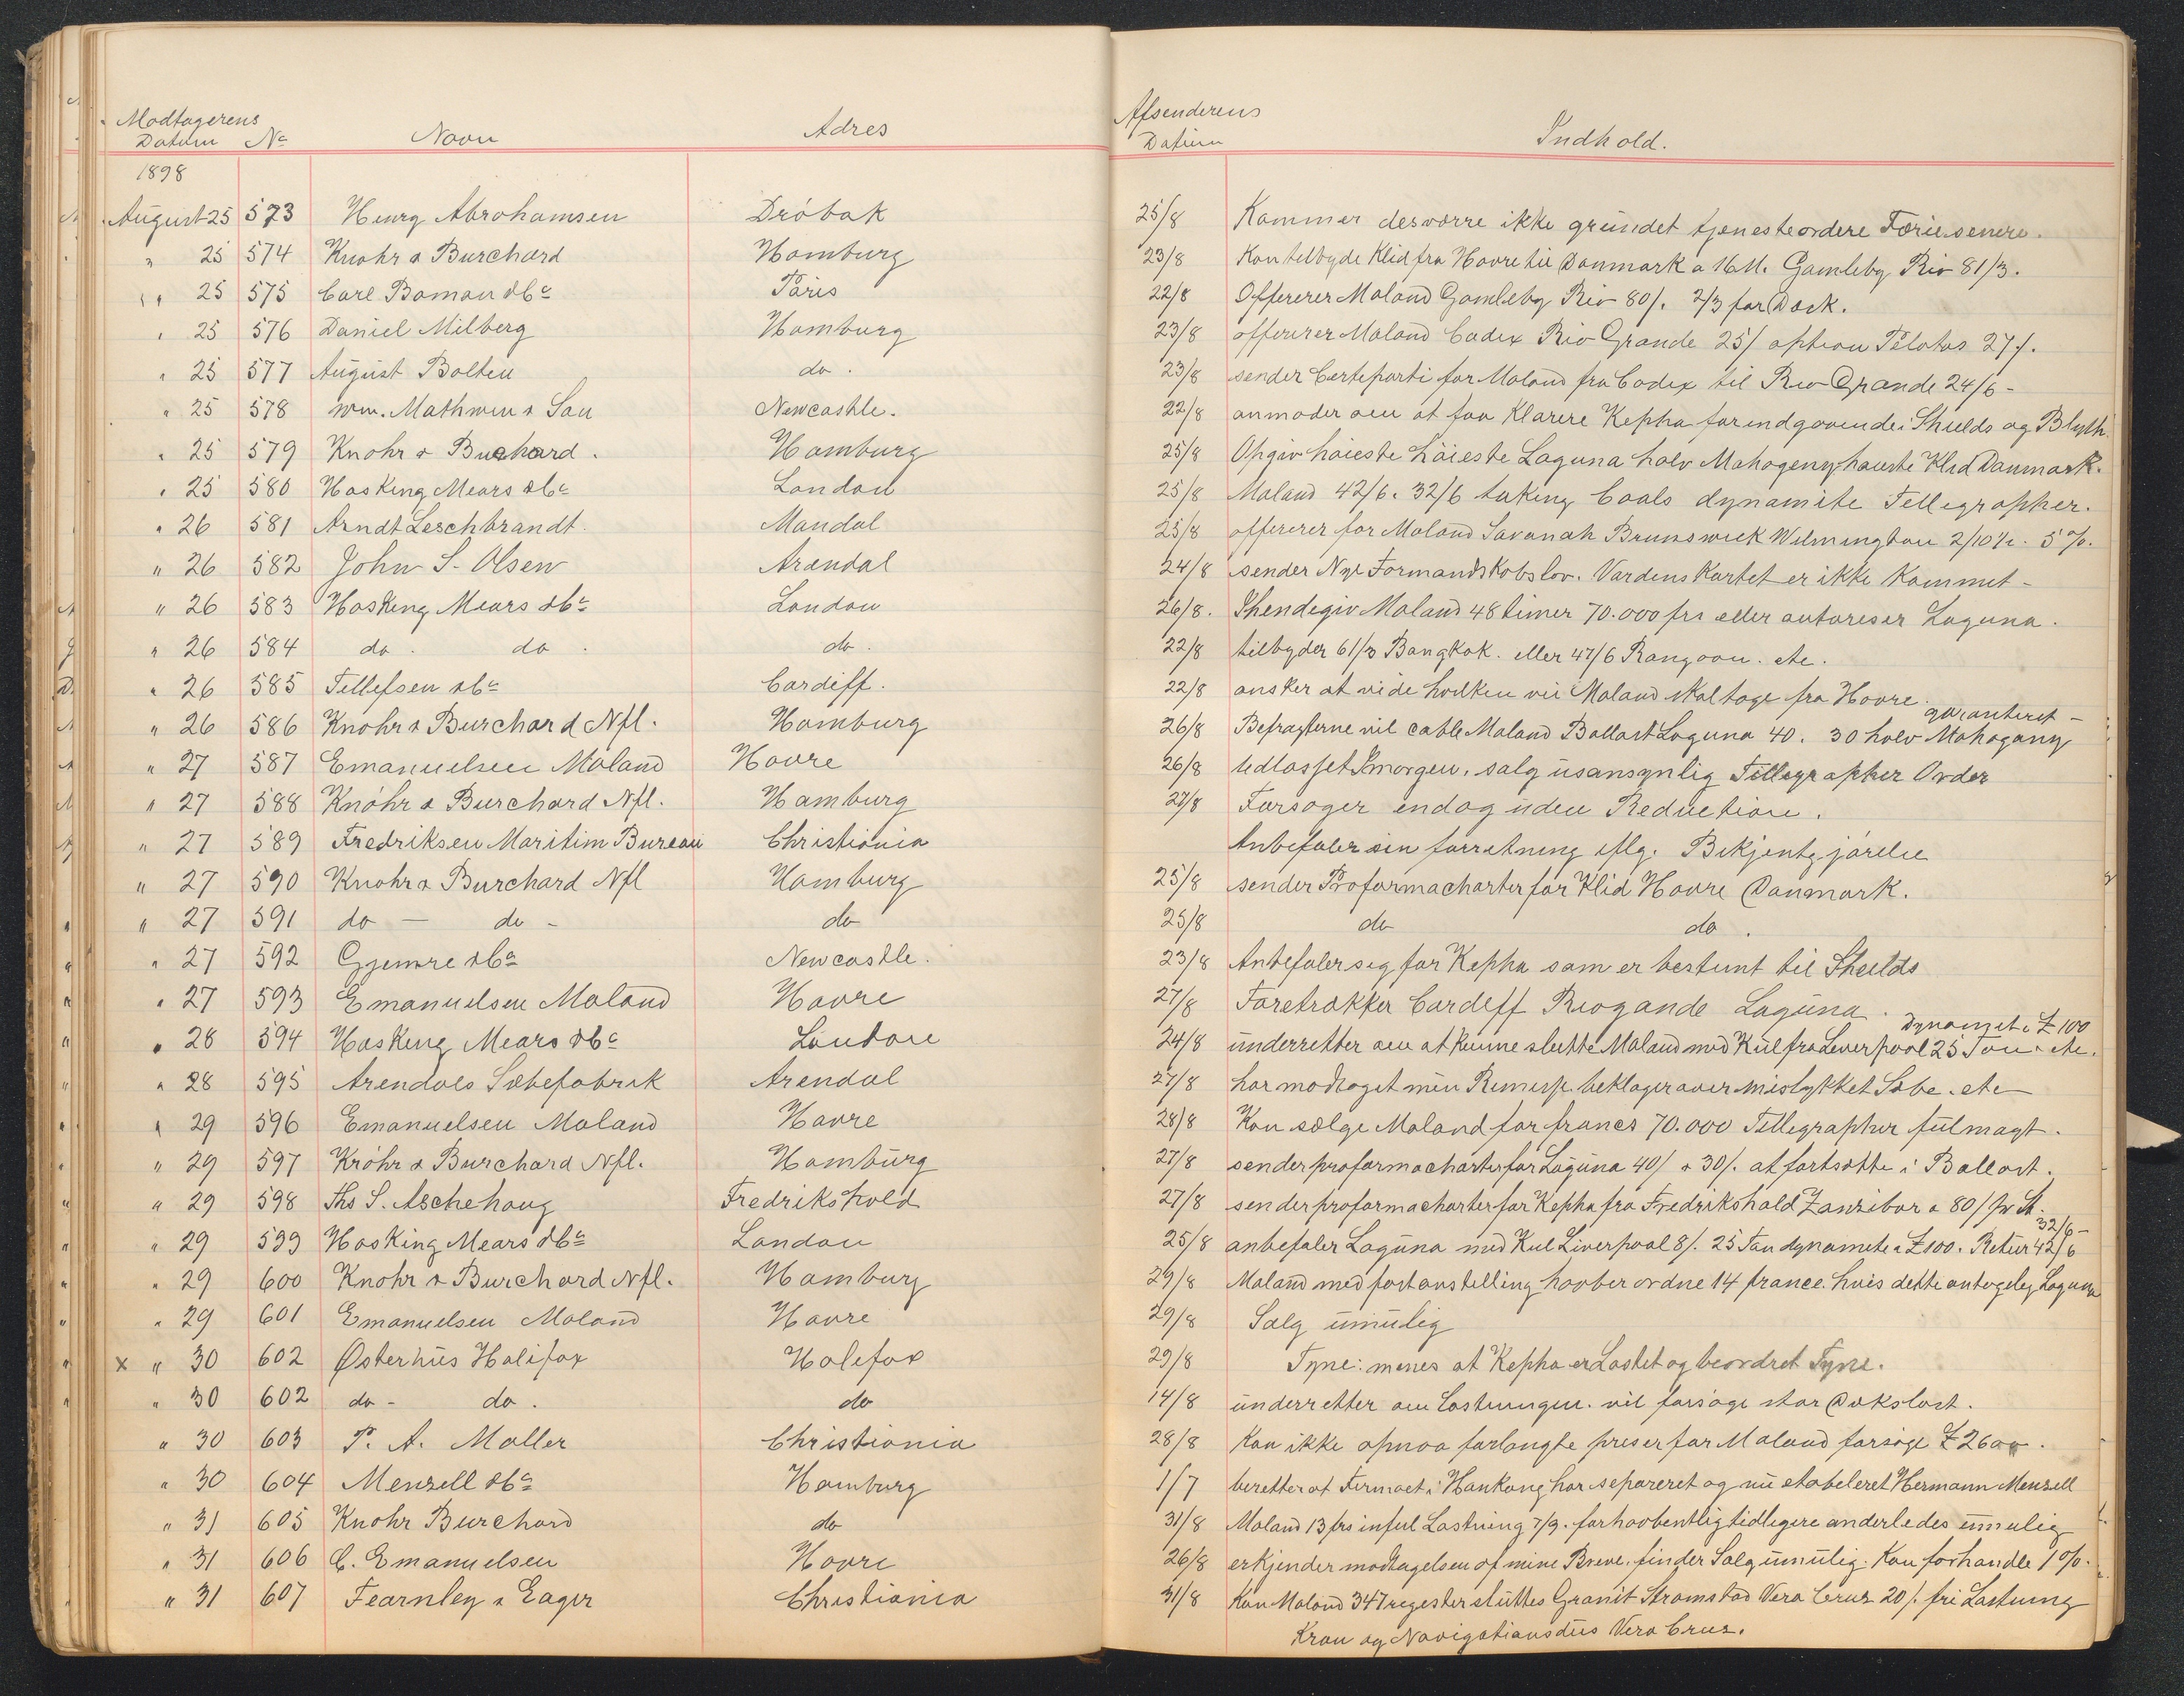 Modtagerens
Datum No Navn Adres
1898
August 25 573 Henrg Abrahamsen Dröbak
" 25 574 Knohr & Burchard Hamburg
" 25 575 Carl Boman & Co Paris
" 25 576 Daniel Milberg Hamburg
" 25 577 August Bolten do.
" 25 578 Wm. Mathwin & Son Newcastle.
" 25 579 Knohr & Buchard. Hamburg
" 25 580 Hosking Mears & Co London
" 26 581 Arndt Leschbrandt. Mandal
" 26 582 John S. Olsen Arendal
" 26 583 Hosking Mears & Co London
" 26 584 do. do. do.
" 26 585 Tellefsen & Co Cardiff.
" 26 586 Knohr & Burchard Nfl. Hamburg
" 27 587 Emanuelsen Moland Havre
" 27 588 Knöhr & Burchard Nfl. Hamburg
" 27 589 Fredriksen Maritim Bureau Christiania
" 27 590 Knohr & Burchard Nfl Hamburg
" 27 591 do - do - do
" 27 592 & Co Newcastle.
" 27 593 Emanuelsen Moland Havre
" 28 594 Hosking Mears & Co London
" 28 595 Arendals Sæbefabrik Arendal
" 29 596 Emanuelsen Moland Havre
" 29 597 Kröhr & Burchard Nfl. Hamburg
" 29 598 Ths S. Aschehoug Fredrikshold
" 29 599 Hosking Mears & Co London
" 29 600 Knohr & Burchard Nfl. Hamburg
" 29 601 Emanuelsen Moland Havre
x " 30 602 Østerhus Halifax Halifax
" 30 602 do - do. do
" 30 603 P. A. Moller Christiania
" 30 604 Menzell & Co Hamburg
" 31 605 Knohr Burchard do
" 31 606 C. Emanuelsen Havre
" 31 607 Fearnley & Eager Christiania
Afsenderens
Datum Indhold.
25/8 Kommer desværre ikke grundet tjenesteordere Ferie senere.
23/8 Kan tilbyde Klid fra Havre til Danmark a 16 M. Gamleby Rio 81/3.
22/8 Offererer Moland Gamleby Rio 80/. 2/3 for Dæk.
23/8 offererer Moland Cadix Rio Grande 25/ option Pelotas 27/.
23/8 sender Certeparti for Moland fra Cadix til Rio Grande 24/6 -
22/8 anmoder om at faa Klarere Kepha for indgaaende i Shields og Blyth.
25/8 Opgiv høieste Høieste Laguna halv Mahogeny høieste Klid Danmark.
25/8 Moland 42/6. 32/6 taking Coals dynamite Tellegrapher.
25/8 offererer for Moland Savanah Brunswick Wilmington 2/10½. 5%.
24/8 sender Nye Formandskabslov. Vardens Kartet er ikke Kommet -
26/8. Moland 48 timer 70.000 frs eller autoreser Laguna.
22/8 tilbyder 61/3 Bangkok. eller 47/6 Rangoon. etc.
22/8 ønsker at vide hvilken vei Moland skal tage fra Havre.
garanteret -
26/8 Befragterne vil cable Moland Ballast Laguna 40. 30 halv Mahogany
26/8 Udlosset Imorgen, salg usansynlig Tellegrapher Order
27/8 Forsøger endog uden Reduction.
Anbefaler sin forretning iflg. Bekjentgjörelse
25/8 sender Proformacharter for Klid Havre Danmark.
25/8 do do.
23/8 Anbefaler seg for Kepha som er bestemt til Sheilds
27/8 Foretrækker Cardeff Riogande Laguna.
Dynamit a £100
24/8 underretter om at kunne slutte Moland med Kul fra Leverpool 25 Ton etc.
27/8 har modtaget min Remesse beklager over mislykket Sæbe. etc
28/8 Kan sælge Moland for francs 70.000 Tellegrapher fulmagt.
27/8 sender proformacharter for Laguna 40/ & 30/. at fortsætte i Ballast.
27/8 sender proformacharter for Kepha fra Fredrikshald Zanzibar a 80/ pr St.
32/6 -
25/8 anbefaler Laguna med Kul Liverpool 8/. 25 Ton dynamite a £100. Retur 42/6
29/8 Moland med fortanstelling haaber ordne 14 france. hvis dette Laguna
29/8 Salg umulig
29/8 Tyne: menes at Kepha er Lastet og beordret Tyne.
14/8 underretter om Lastningen. vil forsøge stor Dækslast.
28/8 Kan ikke opnaa forlangte preser for Moland forsøge £2600.
1/7 beretter at Firmaet i Hankong har separeret og nu etableret Hermann Menzell
31/8 Moland 13 frs inful Lastning 7/9. forhaabentlig tidligere anderledes umulig
26/8 erkjender modtagelsen af mine Breve, finder Salg umulig. Kan forhandle 1%.
31/8 Kan Moland 347 register sluttes Granit Strømstad Vera Cruz 20/. fri Lastning
Kran og Navigationsdus Vera Cruz.